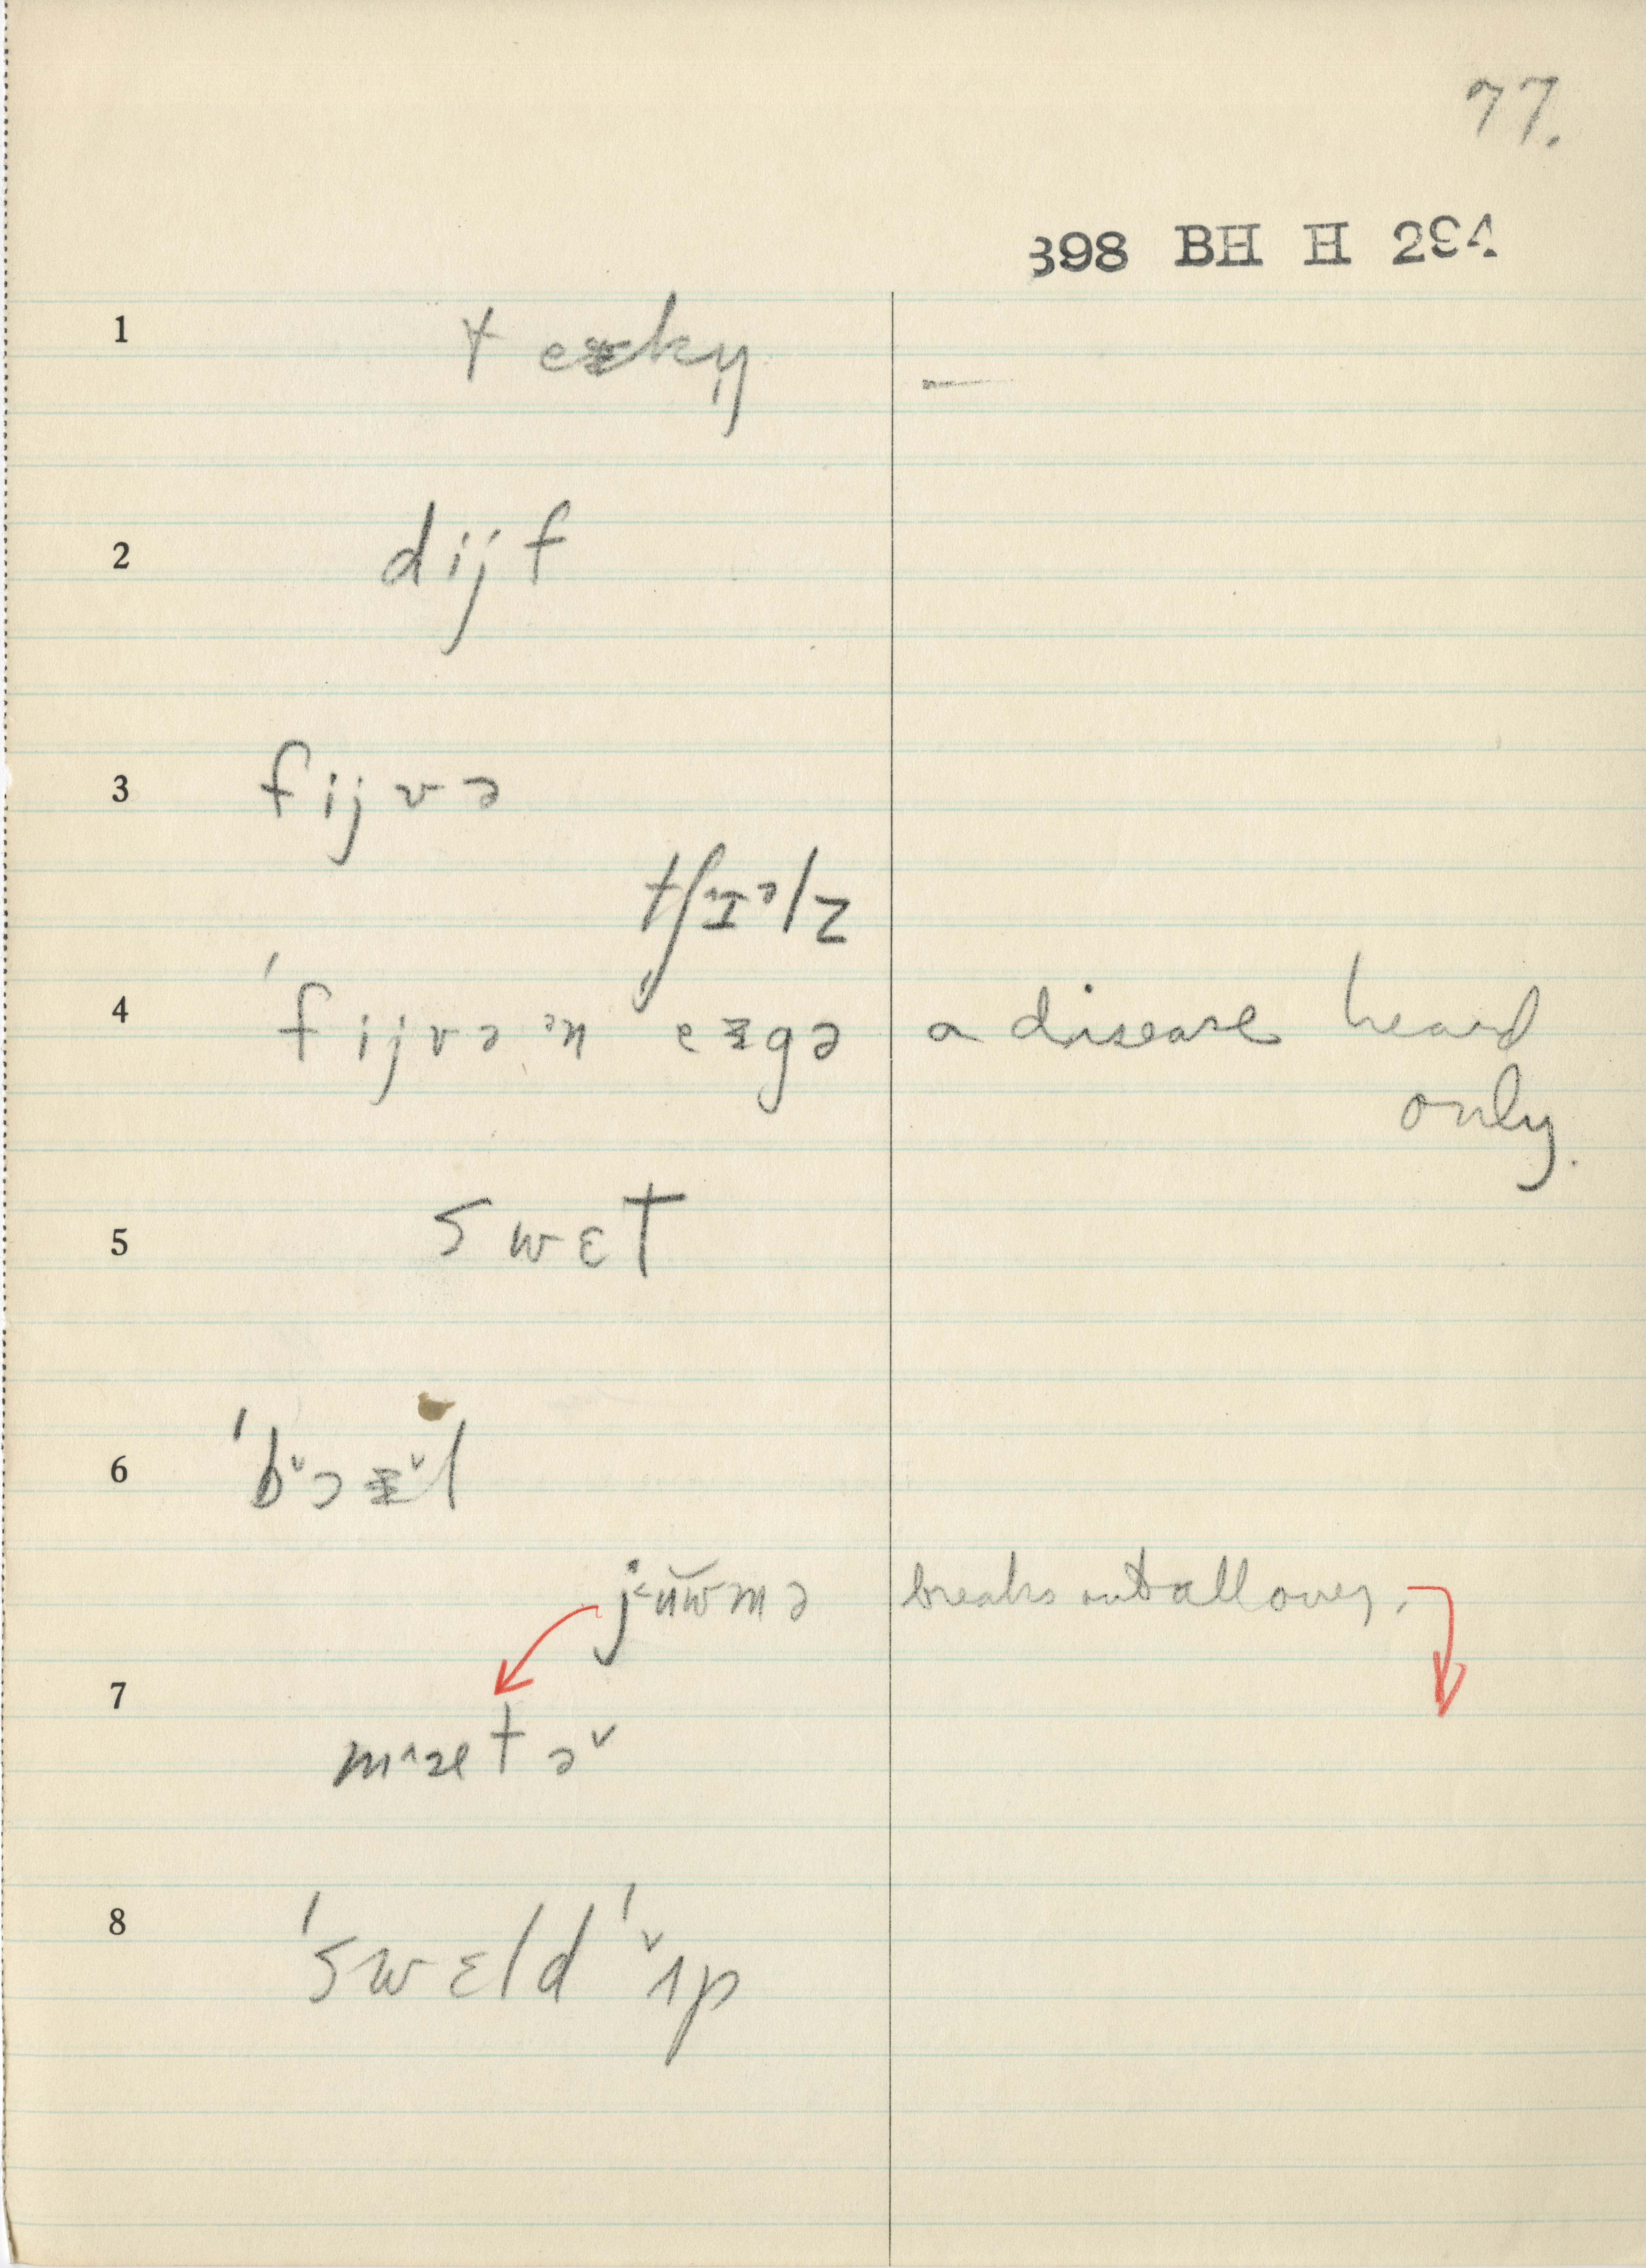 77.
398 BH H 294
1
2 dijf
3 fijvə
tʃɪəlz
4 ˈfijvə ən eɪgə a disease heard
only.
5 swɛt
6
breaks out all over.
7 mətə
8 ˈswɛldˈʌp